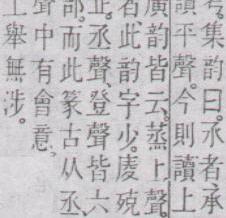 集韵曰。氶者承
讀平聲。今則讀上
廣韵皆云。蒸上聲。
若此韵字少。庱殑
止。丞聲登聲皆六
部。而此篆古从丞
聲中有會意。
上舉無涉。